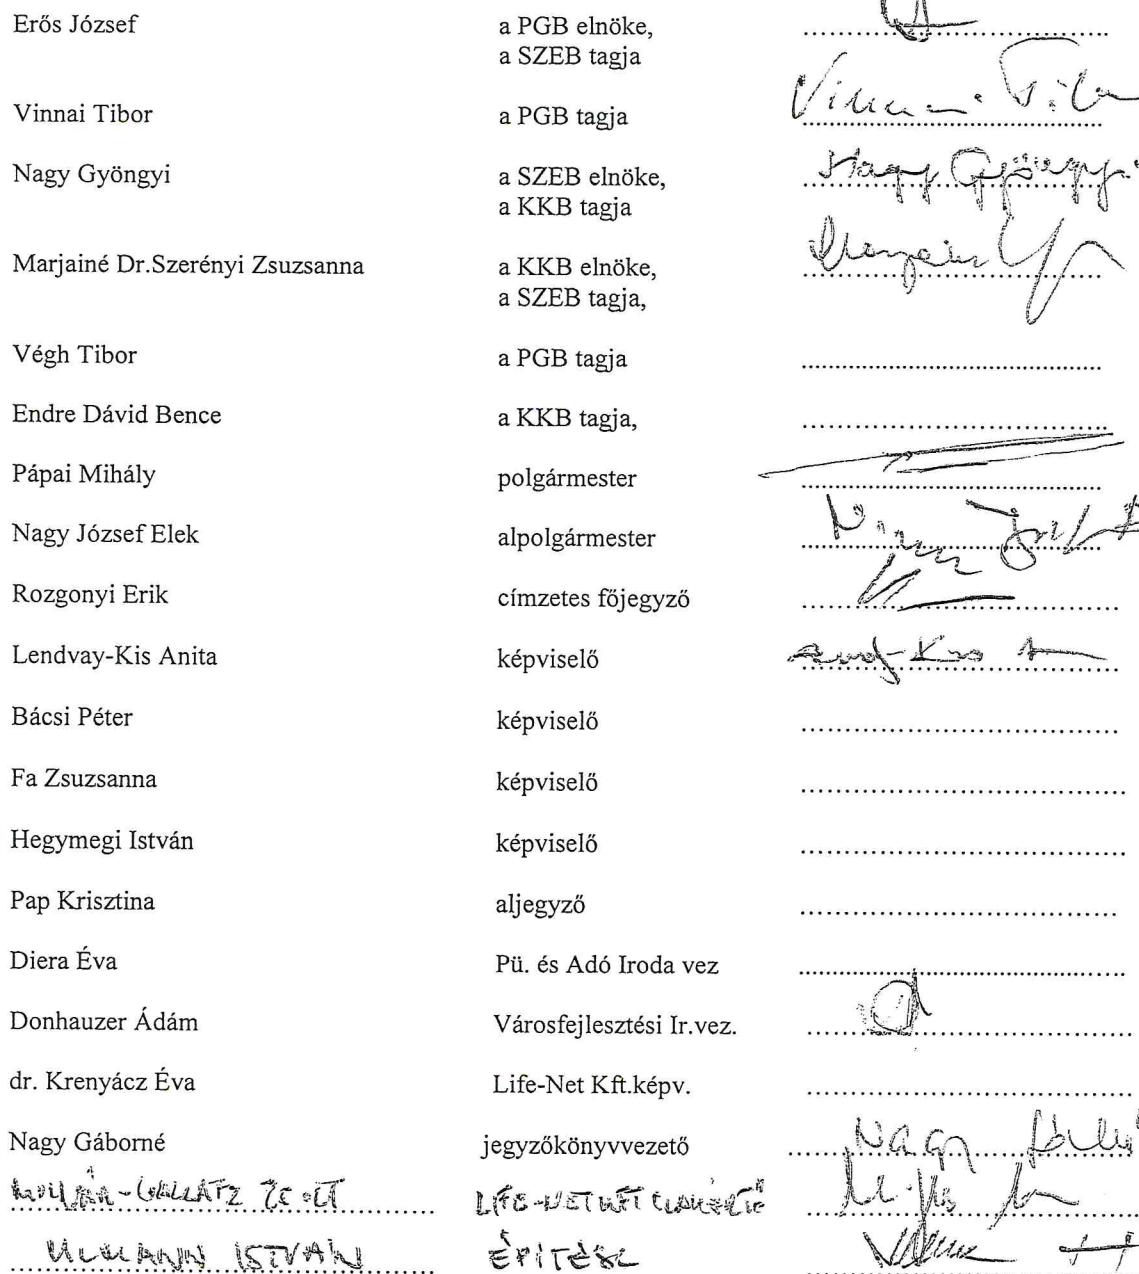 Erős József a PGB elnöke,
a SZEB tagja
Vinnai Tibor a PGB tagja Vinnai Tibor
Nagy Gyöngyi a SZEB elnöke, Nagy Gyöngyi
a KKB tagja
Marjainé Dr.Szerényi Zsuzsanna a KKB elnöke,
a SZEB tagja,
Végh Tibor a PGB tagja
Endre Dávid Bence a KKB tagja,
Pápai Mihály polgármester
Nagy József Elek alpolgármester
Rozgonyi Erik címzetes főjegyző
Lendvay-Kis Anita képviselő
Bácsi Péter képviselő
Fa Zsuzsanna képviselő
Hegymegi István képviselő
Pap Krisztina aljegyző
Diera Éva Pü. és Adó Iroda vez
Donhauzer Ádám Városfejlesztési Ir.vez.
dr. Krenyácz Éva Life-Net Kft.képv.
Nagy Gáborné jegyzőkönyvvezető Nagy
ZSOLT LIFE-NET KFT
ULLMANN ISTVÁN ÉPÍTÉSZ